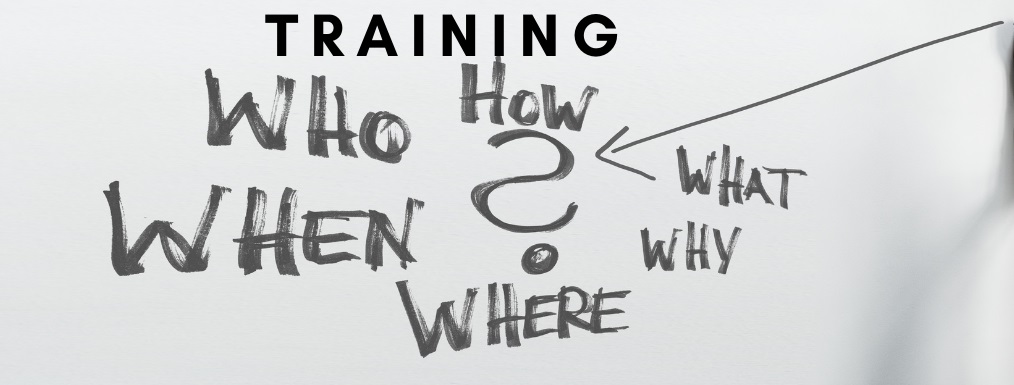 TRAINING
WHO
HOW
?
WHAT
WHEN
WHY
WHERE